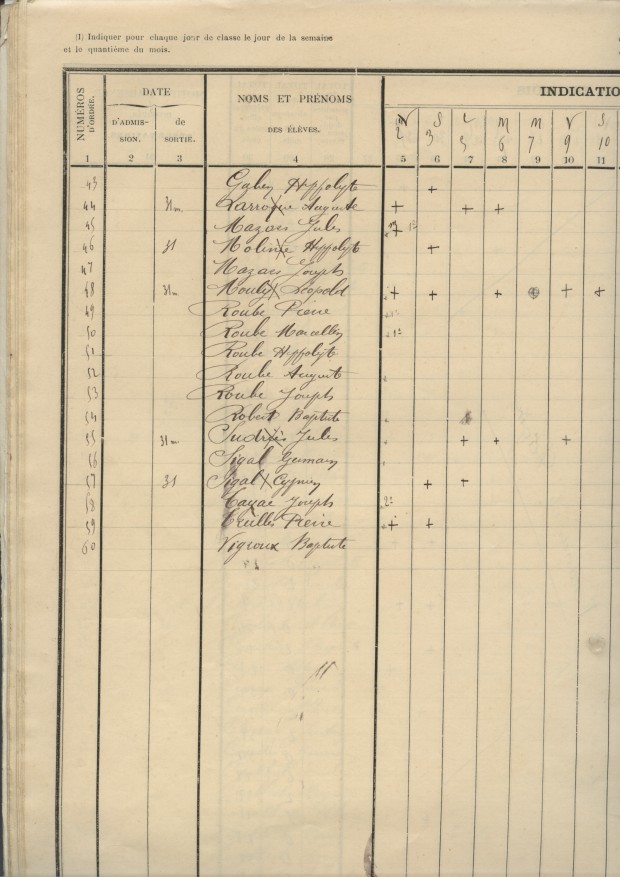 (1) Indiquer pour chaque jour de classe le jour de la semaine
et le quantième du mois.
NUMÉROS D'ORDRE. DATE NOMS ET PRÉNOMS DES ÉLÈVES. INDICATIO
D'ADMIS-SION. de SORTIE.
V S L M M V S
2 3 5 6 7 9 10
1 2 3 4 5 6 7 8 9 10 11
43 Hippolyte +
44 31 m Larroque Auguste + + +
45 Mazars Jules
46 31 Molinié Hippolyte +
47 Mazars Joseph
48 31 m Mouly Léopold + + + + + +
49 Roube Pierre
50 Roube Marcellin
51 Roube Hippolyte
52 Roube Auguste
53 Roube Joseph
54 Robert Baptiste
55 31 m Jules + + +
56 Sigal Germain
57 31 Sigal Cyprien + +
58 Joseph
59 Truilhé Pierre + +
60 Vigroux Baptiste